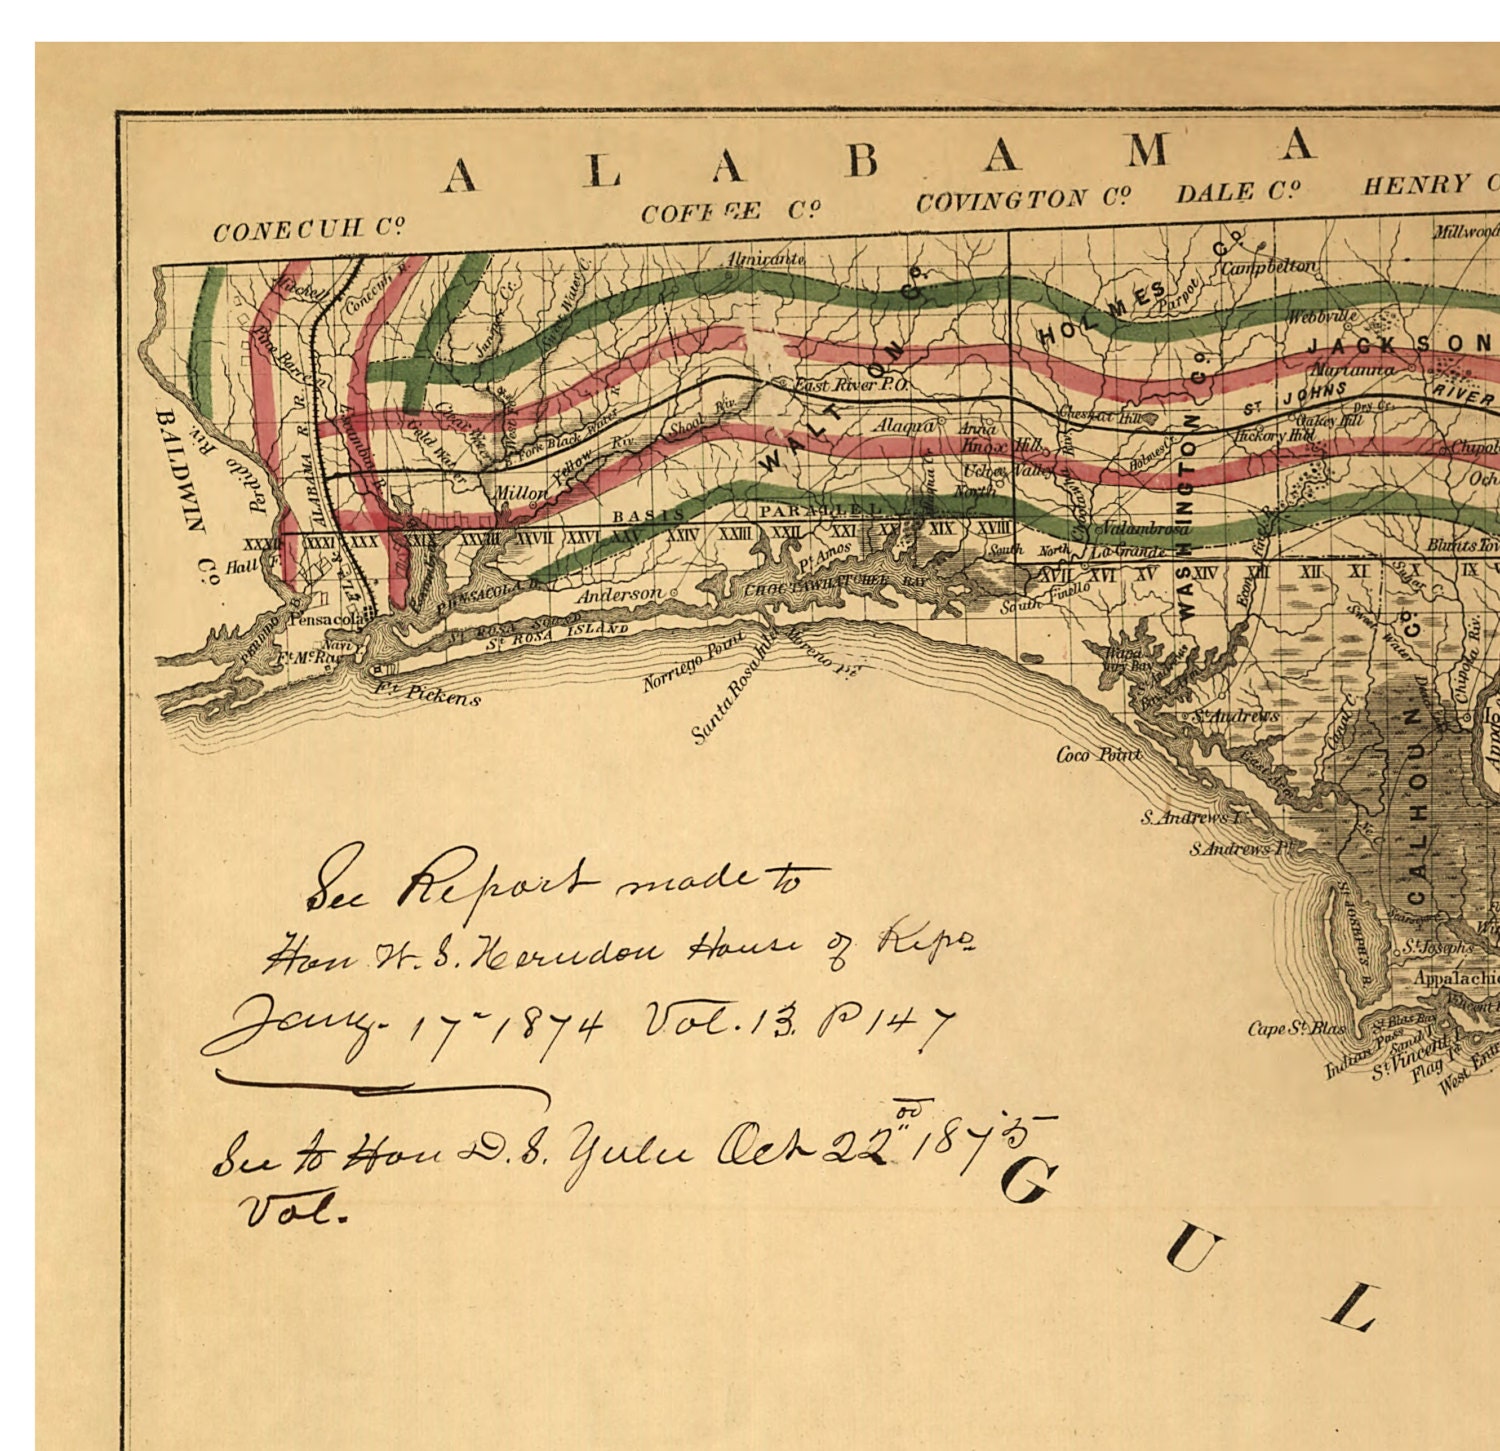 ALABAMA
CONECUH Cº
COFFEE Cº
COVINGTON Cº
DALE Cº
HENRY C
BALDWIN Cº
Perdido Riv.
Mitchell
Conecuh R.
Pine Barren
ALABAMA R. R.
Almirante
WALTON Co.
HOLMES Co.
Campbelton
Millwood
Parpot Cr.
Webbville
JACKSON
Marianna
ST JOHNS RIVER
WASHINGTON Cº
East River P.O.
Alaqua
Anna
Knox Hill
Uchee Valley
North
Cheshat Hill
Holmes
Hickory Hill
Oakey Hill
Drs Cr.
Chipol
Och
Black Water
Yellow Riv.
Shoal Riv.
Millon
BASIS PARALLEL
XXXII XXXI XXX XXIX XXVIII XXVII XXVI XXV XXIV XXIII XXII XXI XX XIX XVIII
XVII XVI XV XIV XIII XII XI X IX
Valambrosa
La Grande
South
North
South
Blunts Tow
Hall F.
PERDIDO B.
Pensacola
Navy
Ft McRay
Ft Pickens
PENSACOLA B.
St ROSA SOUND
St ROSA ISLAND
Anderson
Pt Amos
CHOCTAWHATCHEE BAY
Norriego Point
Santa Rosa Inlet
Moreno Pt
Econ
Sweet Water
Chipola Riv.
CALHOUN Co.
St Andrews
Coco Point
East Arm
S. Andrews I.
S. Andrews Pt
St JOSEPHS B.
St Josephs
Appalachic
Cape St Blas
St Blas Bay
Indian Pass
Sand I.
St Vincent I.
Flag Id
West Entr
See Report made to
Hon W. S. Herndon House of Reps
Jany. 17" 1874 Vol. 13. P 147
See to Hon D. S. Yulee Oct 22" nd 1875
Vol.
GUL